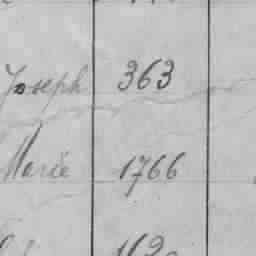 Joseph 363
Marie 1766